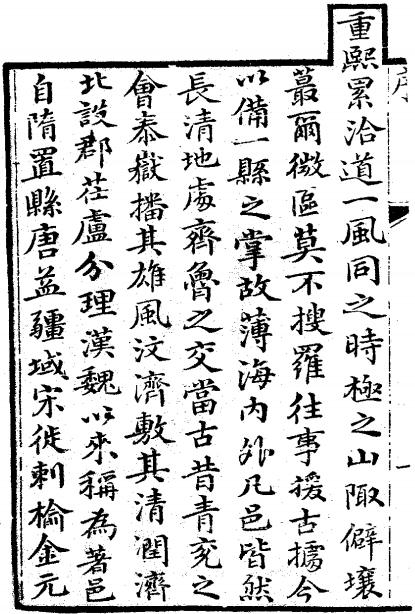 重熙累洽道一風同之時極之山陬僻壤
蕞爾微區莫不搜羅往事援古據今
以備一縣之掌故薄海内外凡邑皆然
長清地處齊魯之交當古昔青兖之
會泰嶽播其雄風汶濟敷其清潤濟
北設郡茌盧分理漢魏以來稱為著邑
自隋置縣唐益疆域宋徙刺榆金元